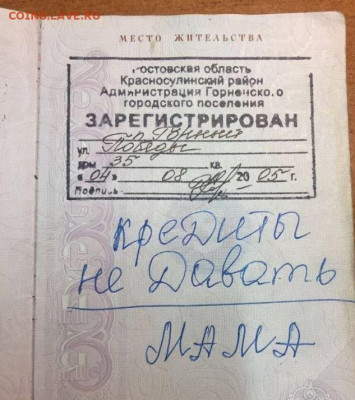 COINS.LAVE.RU
МЕСТО ЖИТЕЛЬСТВА
Ростовская область
Красносулинский район
Администрация Горненского
городского поселения
ЗАРЕГИСТРИРОВАН
п.
ул. Победы
дом 35 кв.
« 04 » 08 2005 г.
Подпись
кредиты
не давать
МАМА